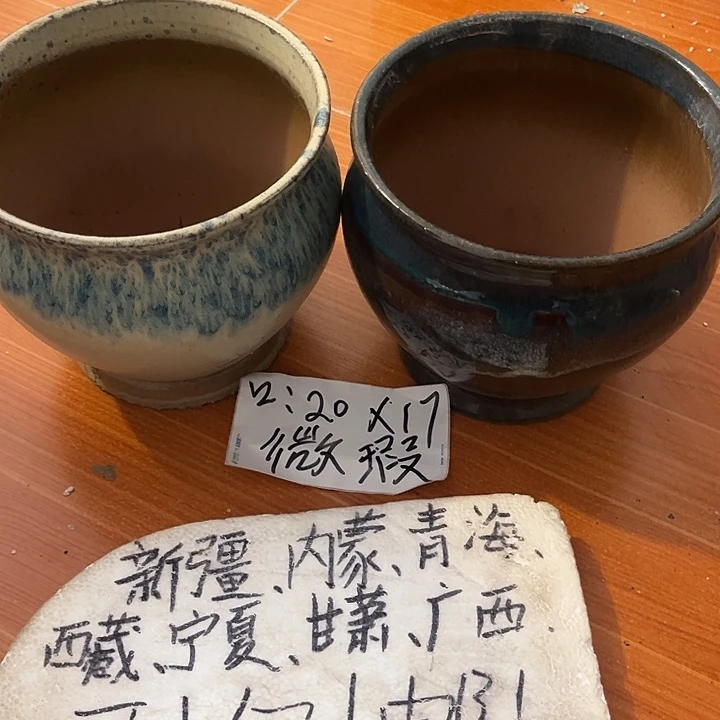 口:20×17
微瑕
新疆、内蒙、青海、
西藏、宁夏、甘萧、广西.